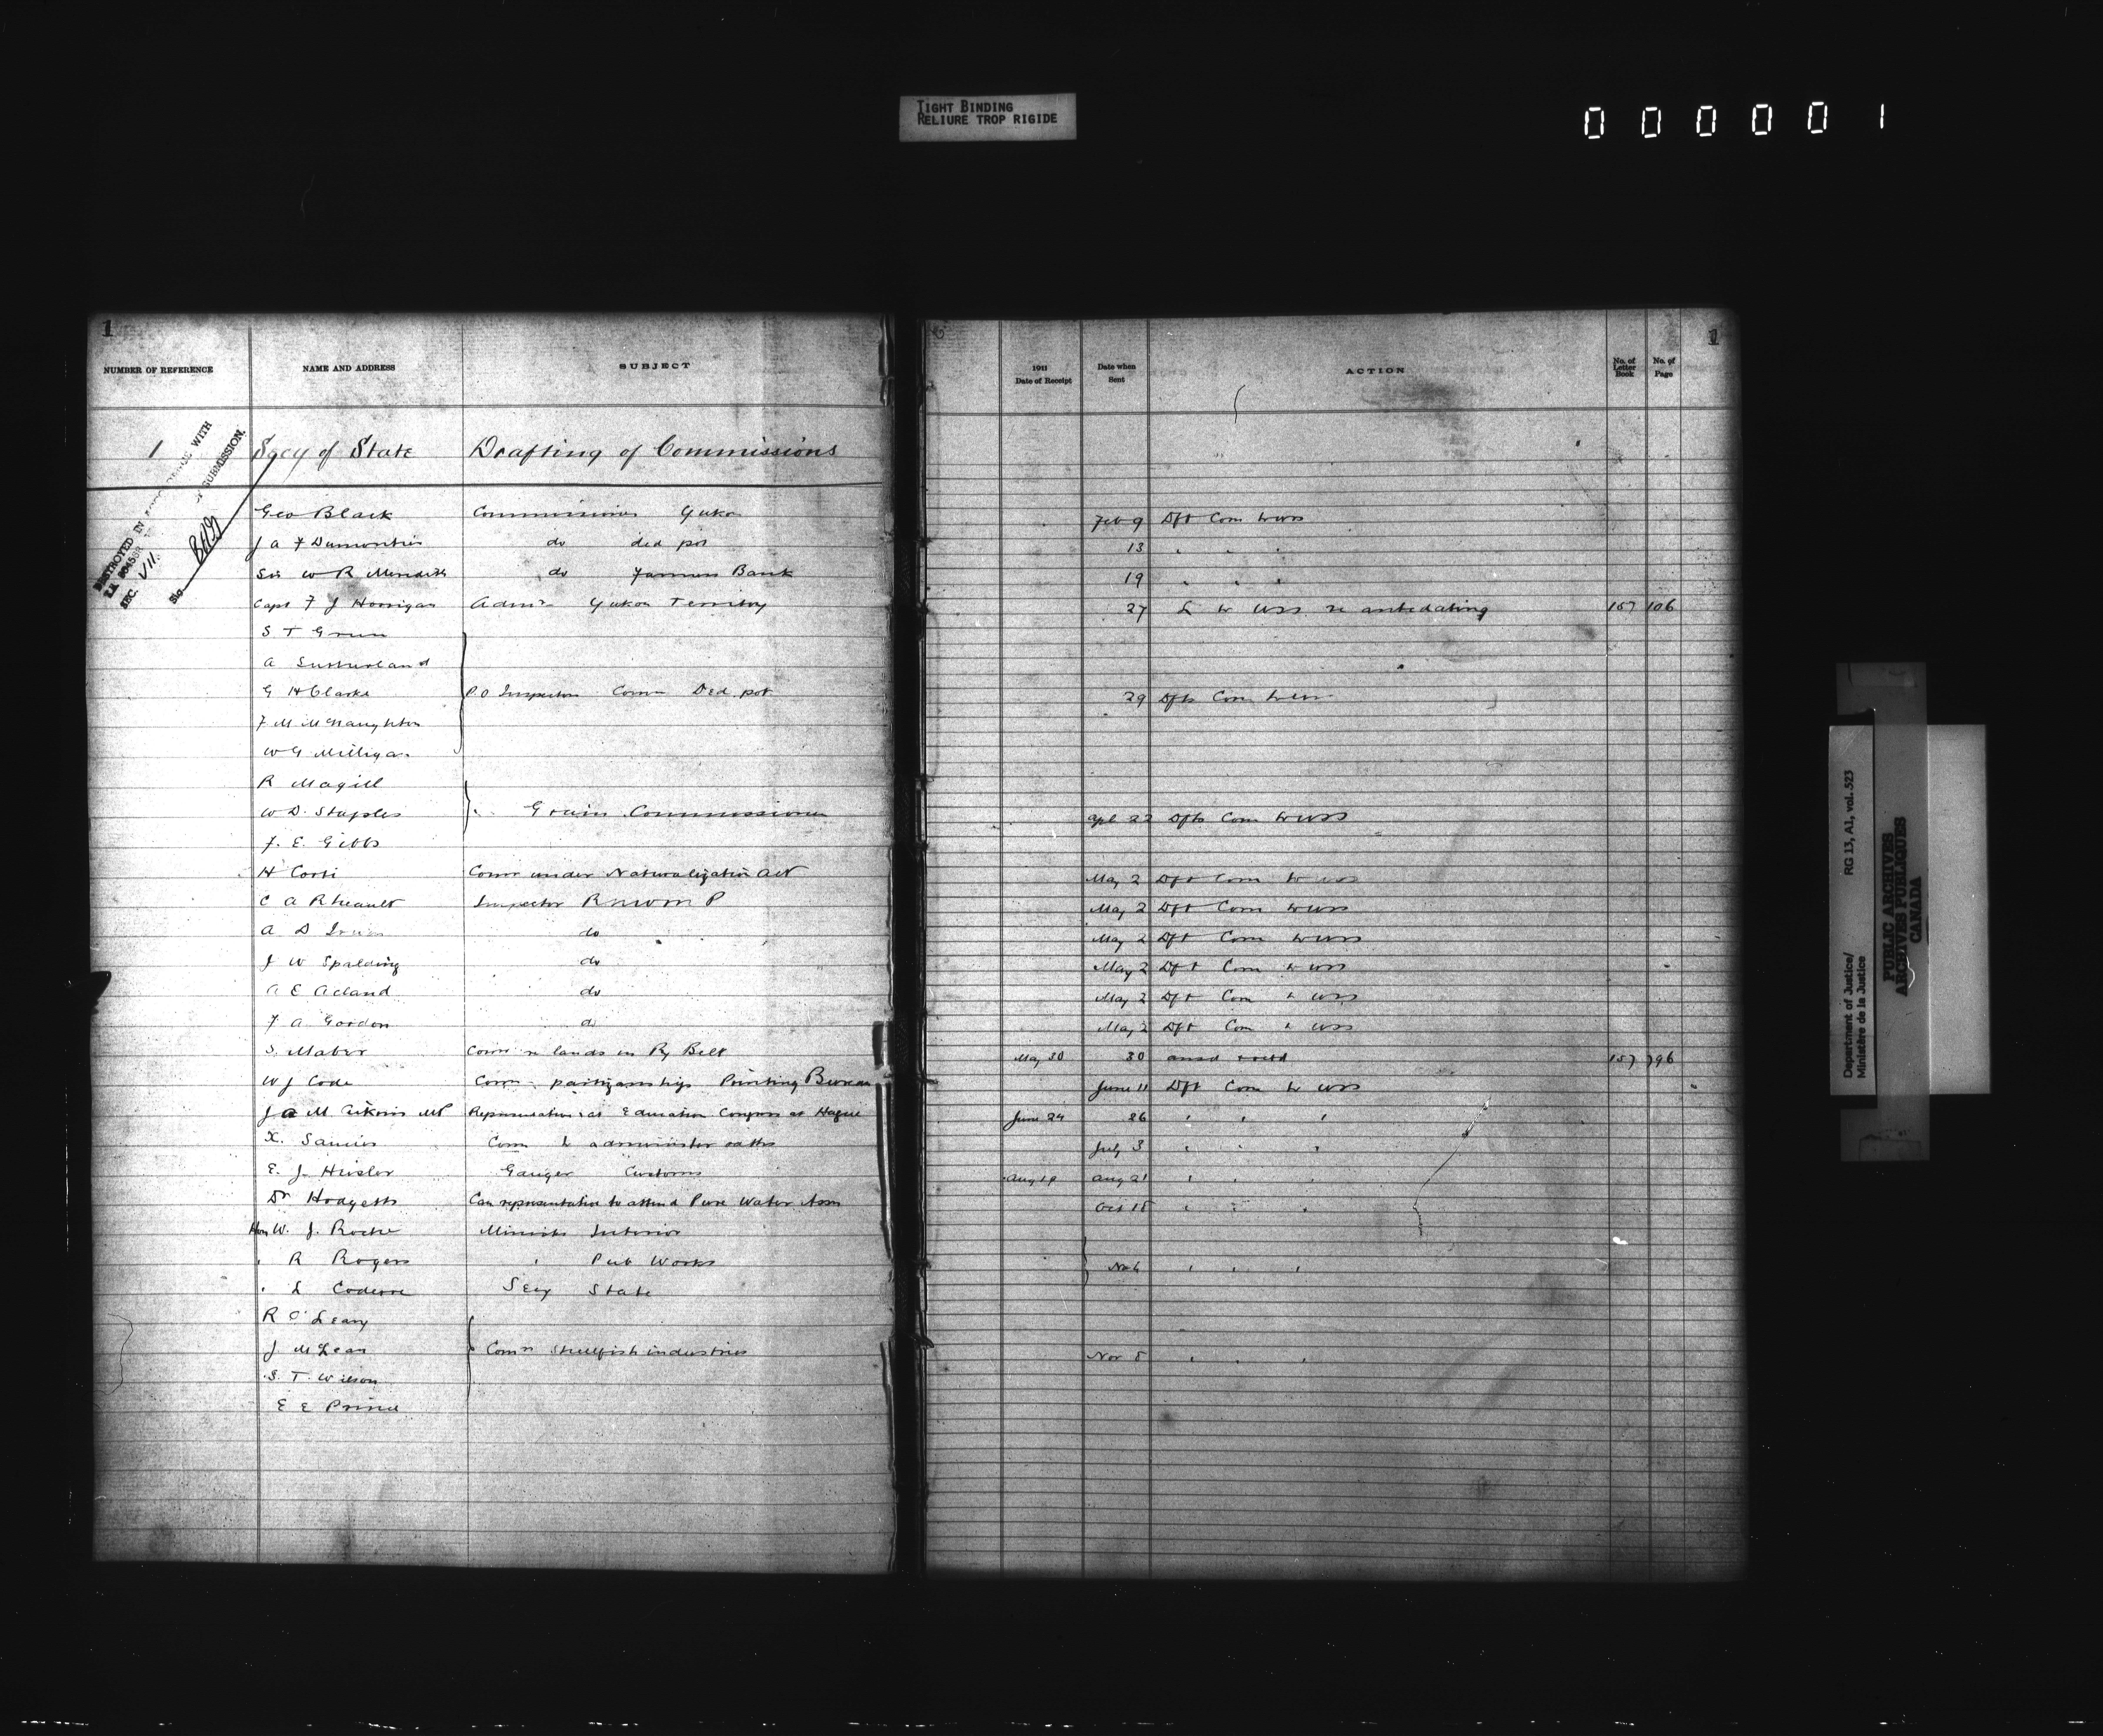 TIGHT BINDING
RELIURE TROP RIGIDE
000001
1
NUMBER OF REFERENCE NAME AND ADDRESS SUBJECT
1 Secy of State Drafting of Commissions
DESTROYED IN WITH
SUBMISSION.
SEC. VII.
Sig
Geo Black Commissioner Yukon
J A F do ded pot
Sir W R Meredith do Farmers Bank
Capt F J Horrigan Admr Yukon Territory
S T Green
A Sutherland
G H Clarke P O Inspector Comn Ded. pot
F M McNaughton
W G Milligan
R Magill
W D. Staples Grain Commissioners
F. E. Gibbs
H Corti Comr under Naturalization Act
C A Rheault Inspector R N W M P
A D Irvin do
J W Spalding do
A E Acland do
F A Gordon do
S. Maber Comn re lands in Ry Belt
W J Code Comn partizanship Printing Bureau
J A M Aikins MP Representative at Education Congress at Hague
X. Comn to administer oaths
E. J. Gauger Customs
Dr Hodgetts Can representative to attend Pure Water Assn
Hon W. J. Roche Minister Interior
" R Rogers " Pub Works
" L Coderre Secy State
R O'Leary
J McLean Comn Shellfish industries
S. T. Wilson
E E Prince
1
1911 Date of Receipt Date when Sent ACTION No. of Letter Book No. of Page
Feb 9 Dft Com to USS
13 " " "
19 " " "
27 L to USS re antedating 157 106
29 Dfts Com to USS
Apl 22 Dfts Com to USS
May 2 Dft Com to USS
May 2 Dft Com to USS
May 2 Dft Com to USS
May 2 Dft Com to USS
May 2 Dft Com to USS
May 2 Dft Com to USS
May 30 30 157 796
June 11 Dft Com to USS
June 24 26 " " "
July 3 " " "
Aug 19 Aug 21 " " "
Oct 18 " " "
Nov 6 " " "
Nov 8 " " "
Department of Justice/ RG 13, A1, vol. 523
Ministère de la Justice
PUBLIC ARCHIVES
ARCHIVES PUBLIQUES
CANADA